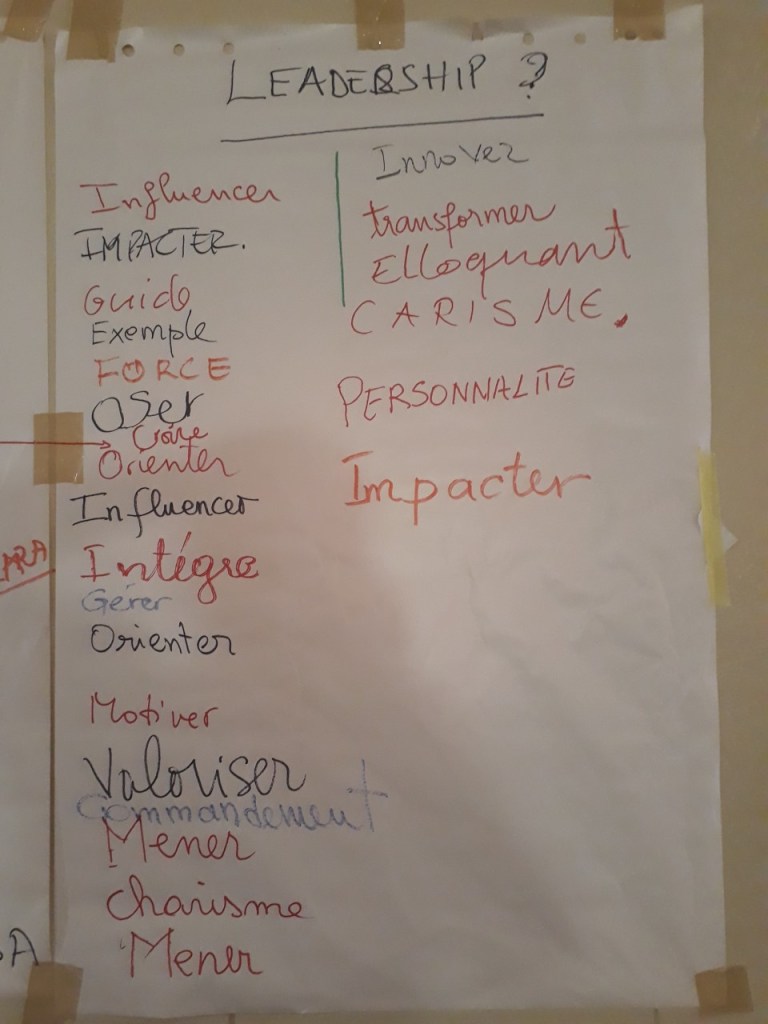 LEADERSHIP ?
Influencer
IMPACTER.
Guide
Exemple
FORCE
OSer
Orienter
Influencer
Intégre
Gérer
Orienter
Motiver
Valoriser
Commandement
Mener
charisme
Mener
Innover
transformer
Elloquant
CARISME.
PERSONNALITE
Impacter